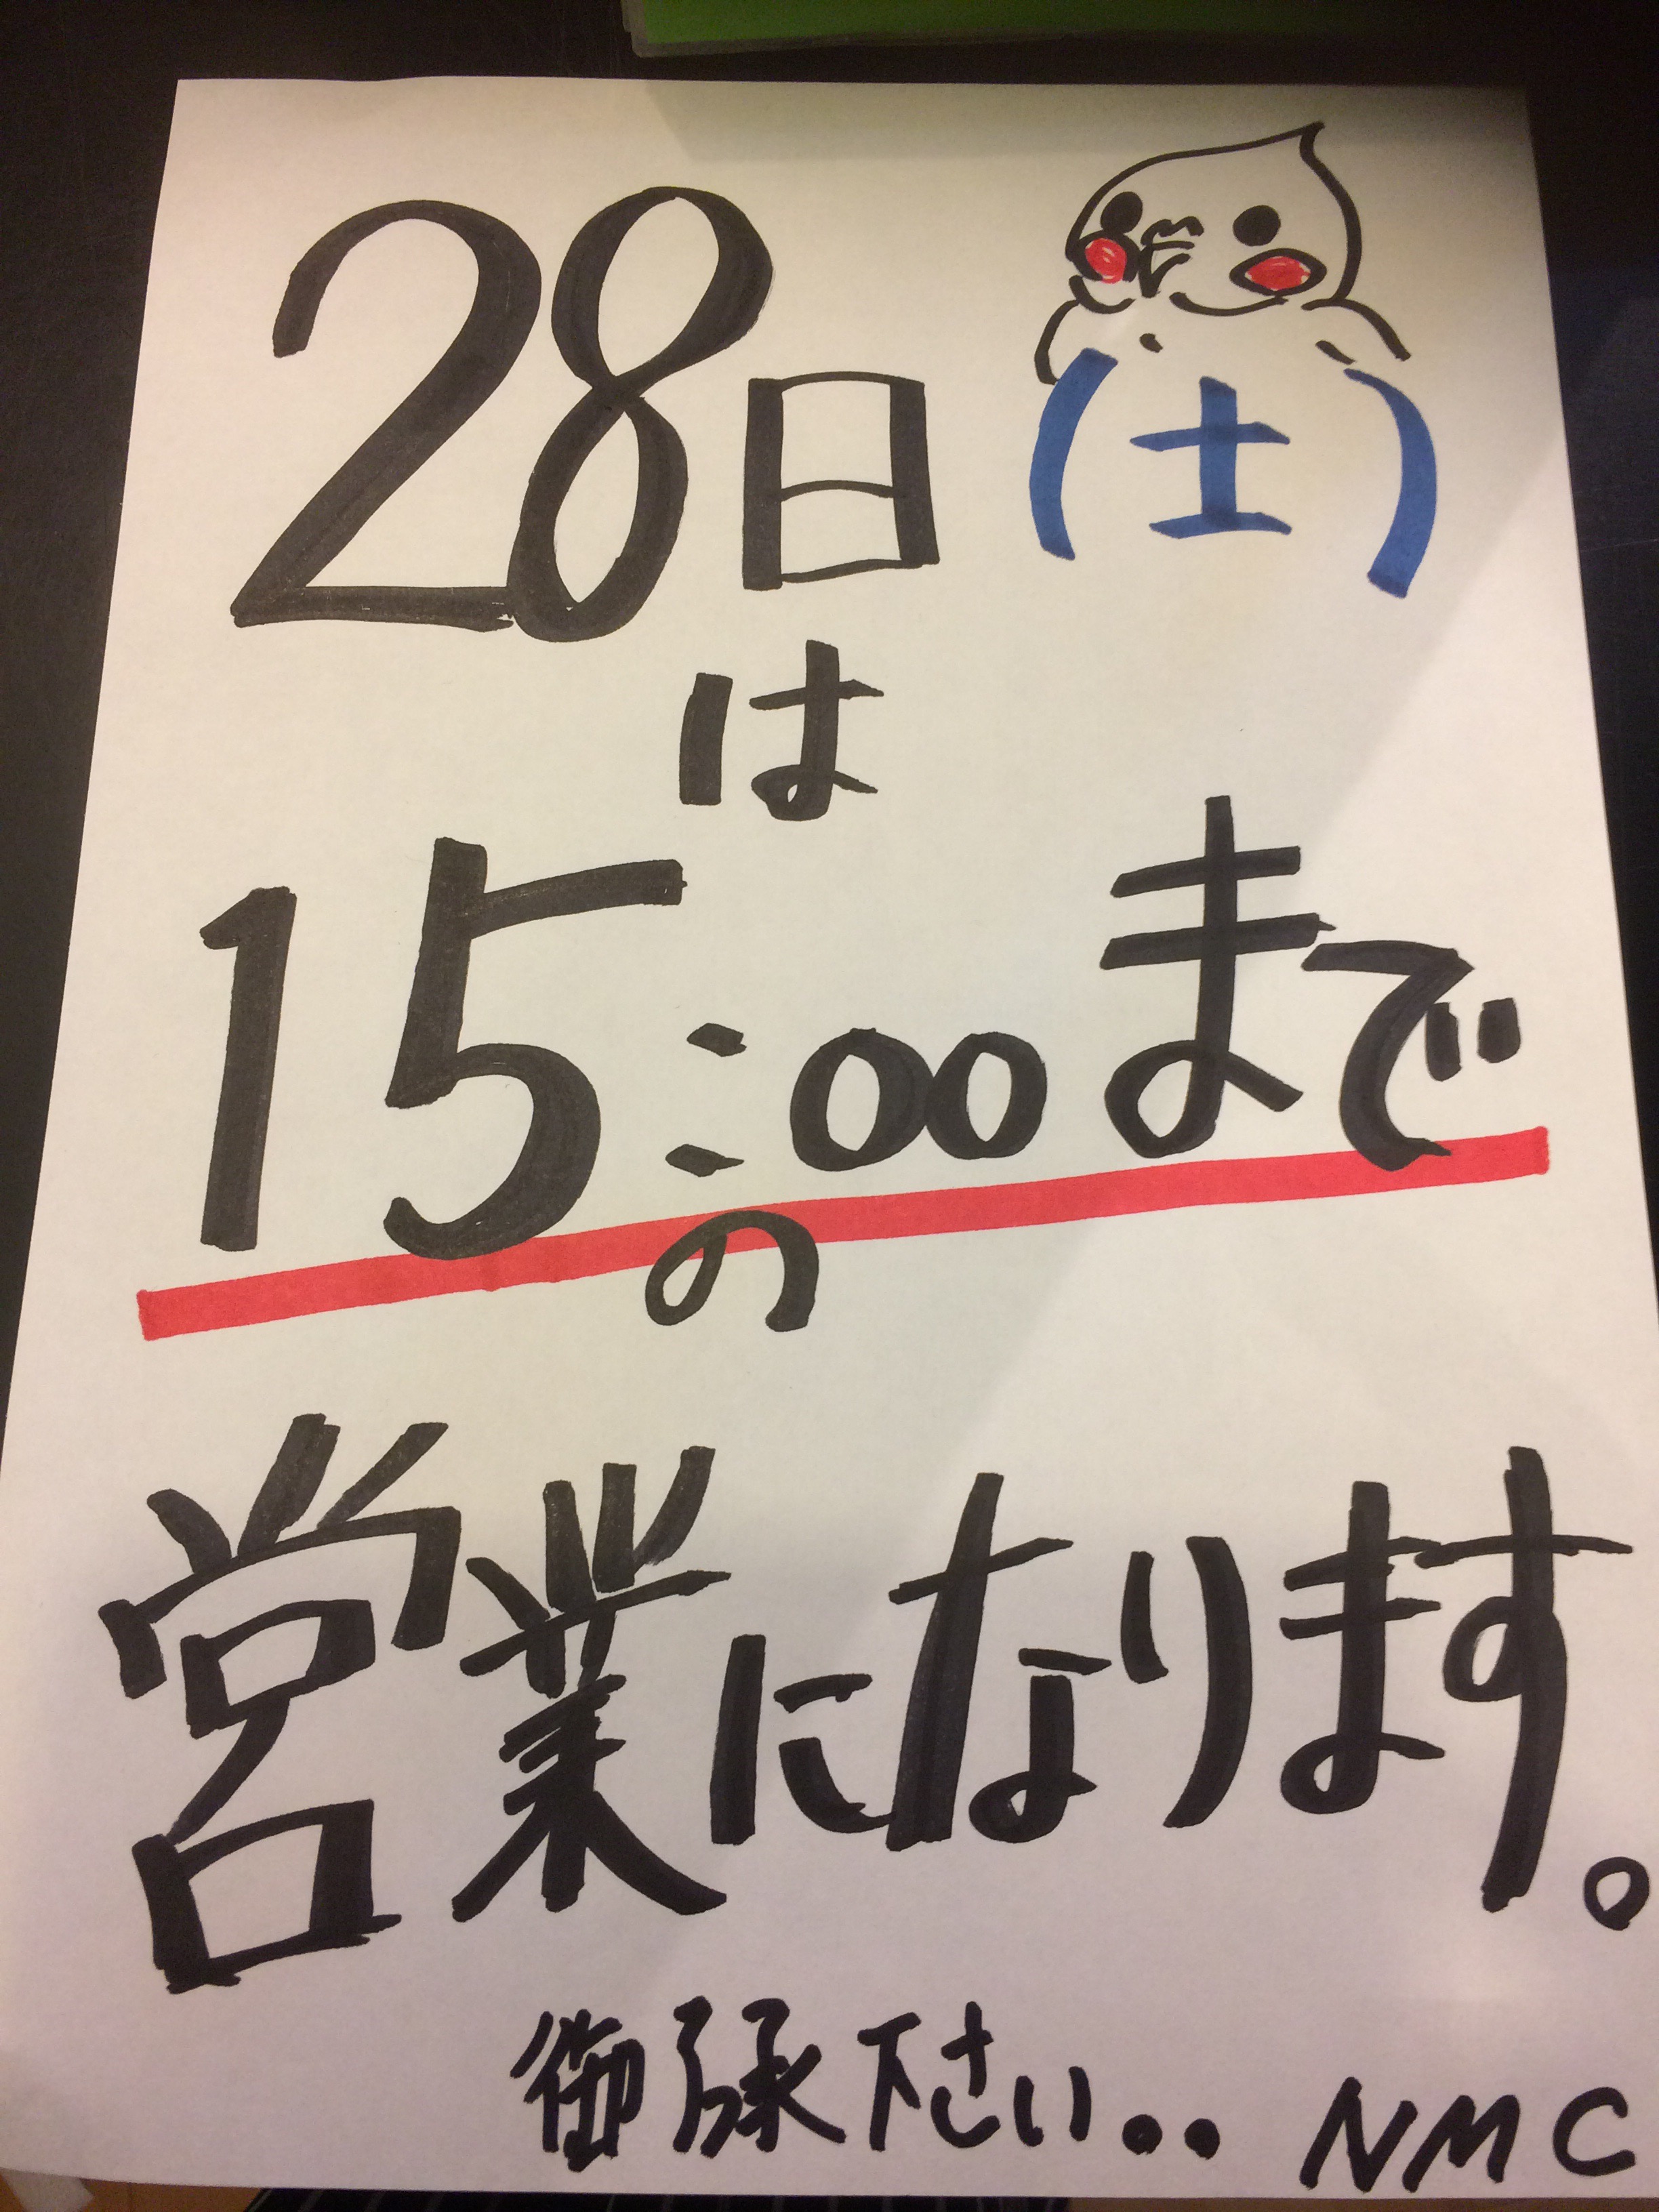 28日(土)
は
15:00まで
の
営業になります。
御承下さい..
NMC